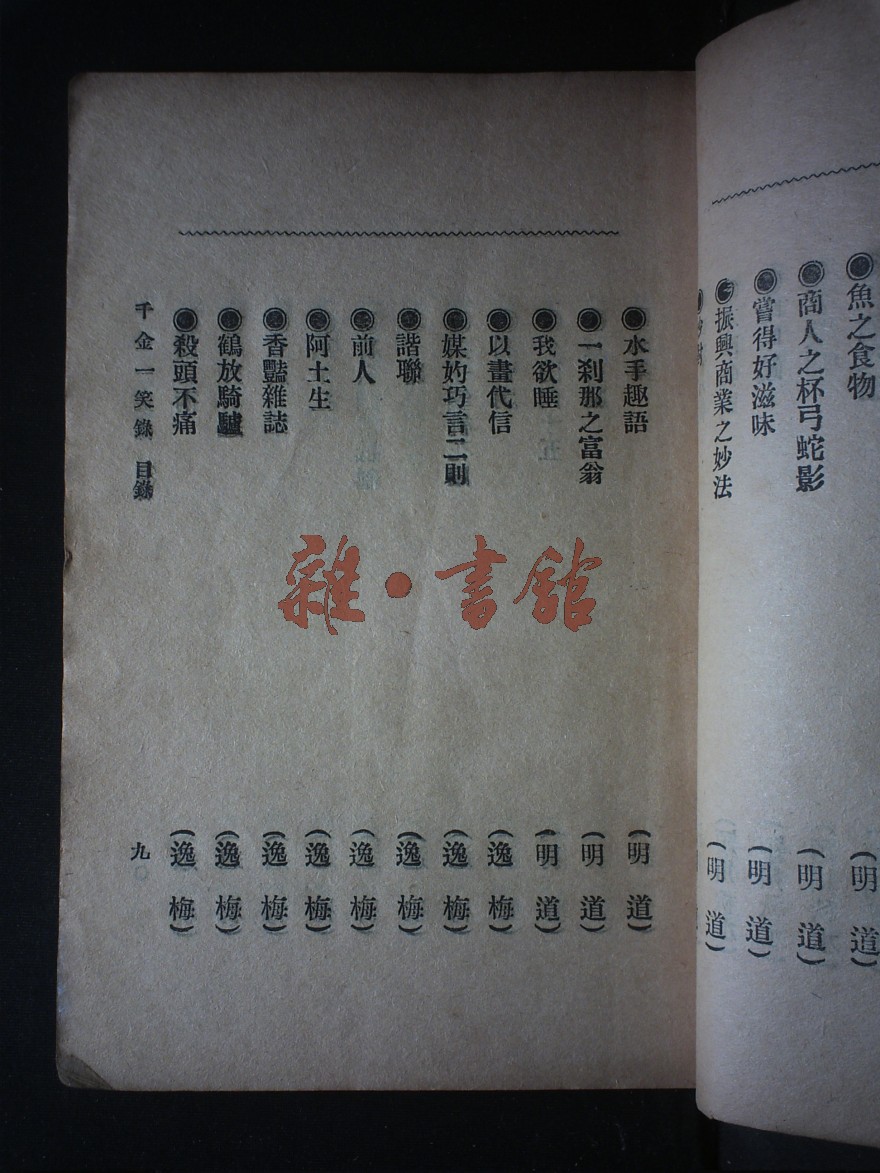 魚之食物 (明道)
商人之杯弓蛇影 (明道)
嘗得好滋味 (明道)
振興商業之妙法 (明道)
水手趣語 (明道)
一刹那之富翁 (明道)
我欲睡 (明道)
以畫代信 (逸梅)
媒妁巧言二則 (逸梅)
諧聯 (逸梅)
前人 (逸梅)
阿土生 (逸梅)
香豔雜誌 (逸梅)
鶴放騎驢 (逸梅)
殺頭不痛 (逸梅)
千金一笑錄 目錄 九
雜·書館